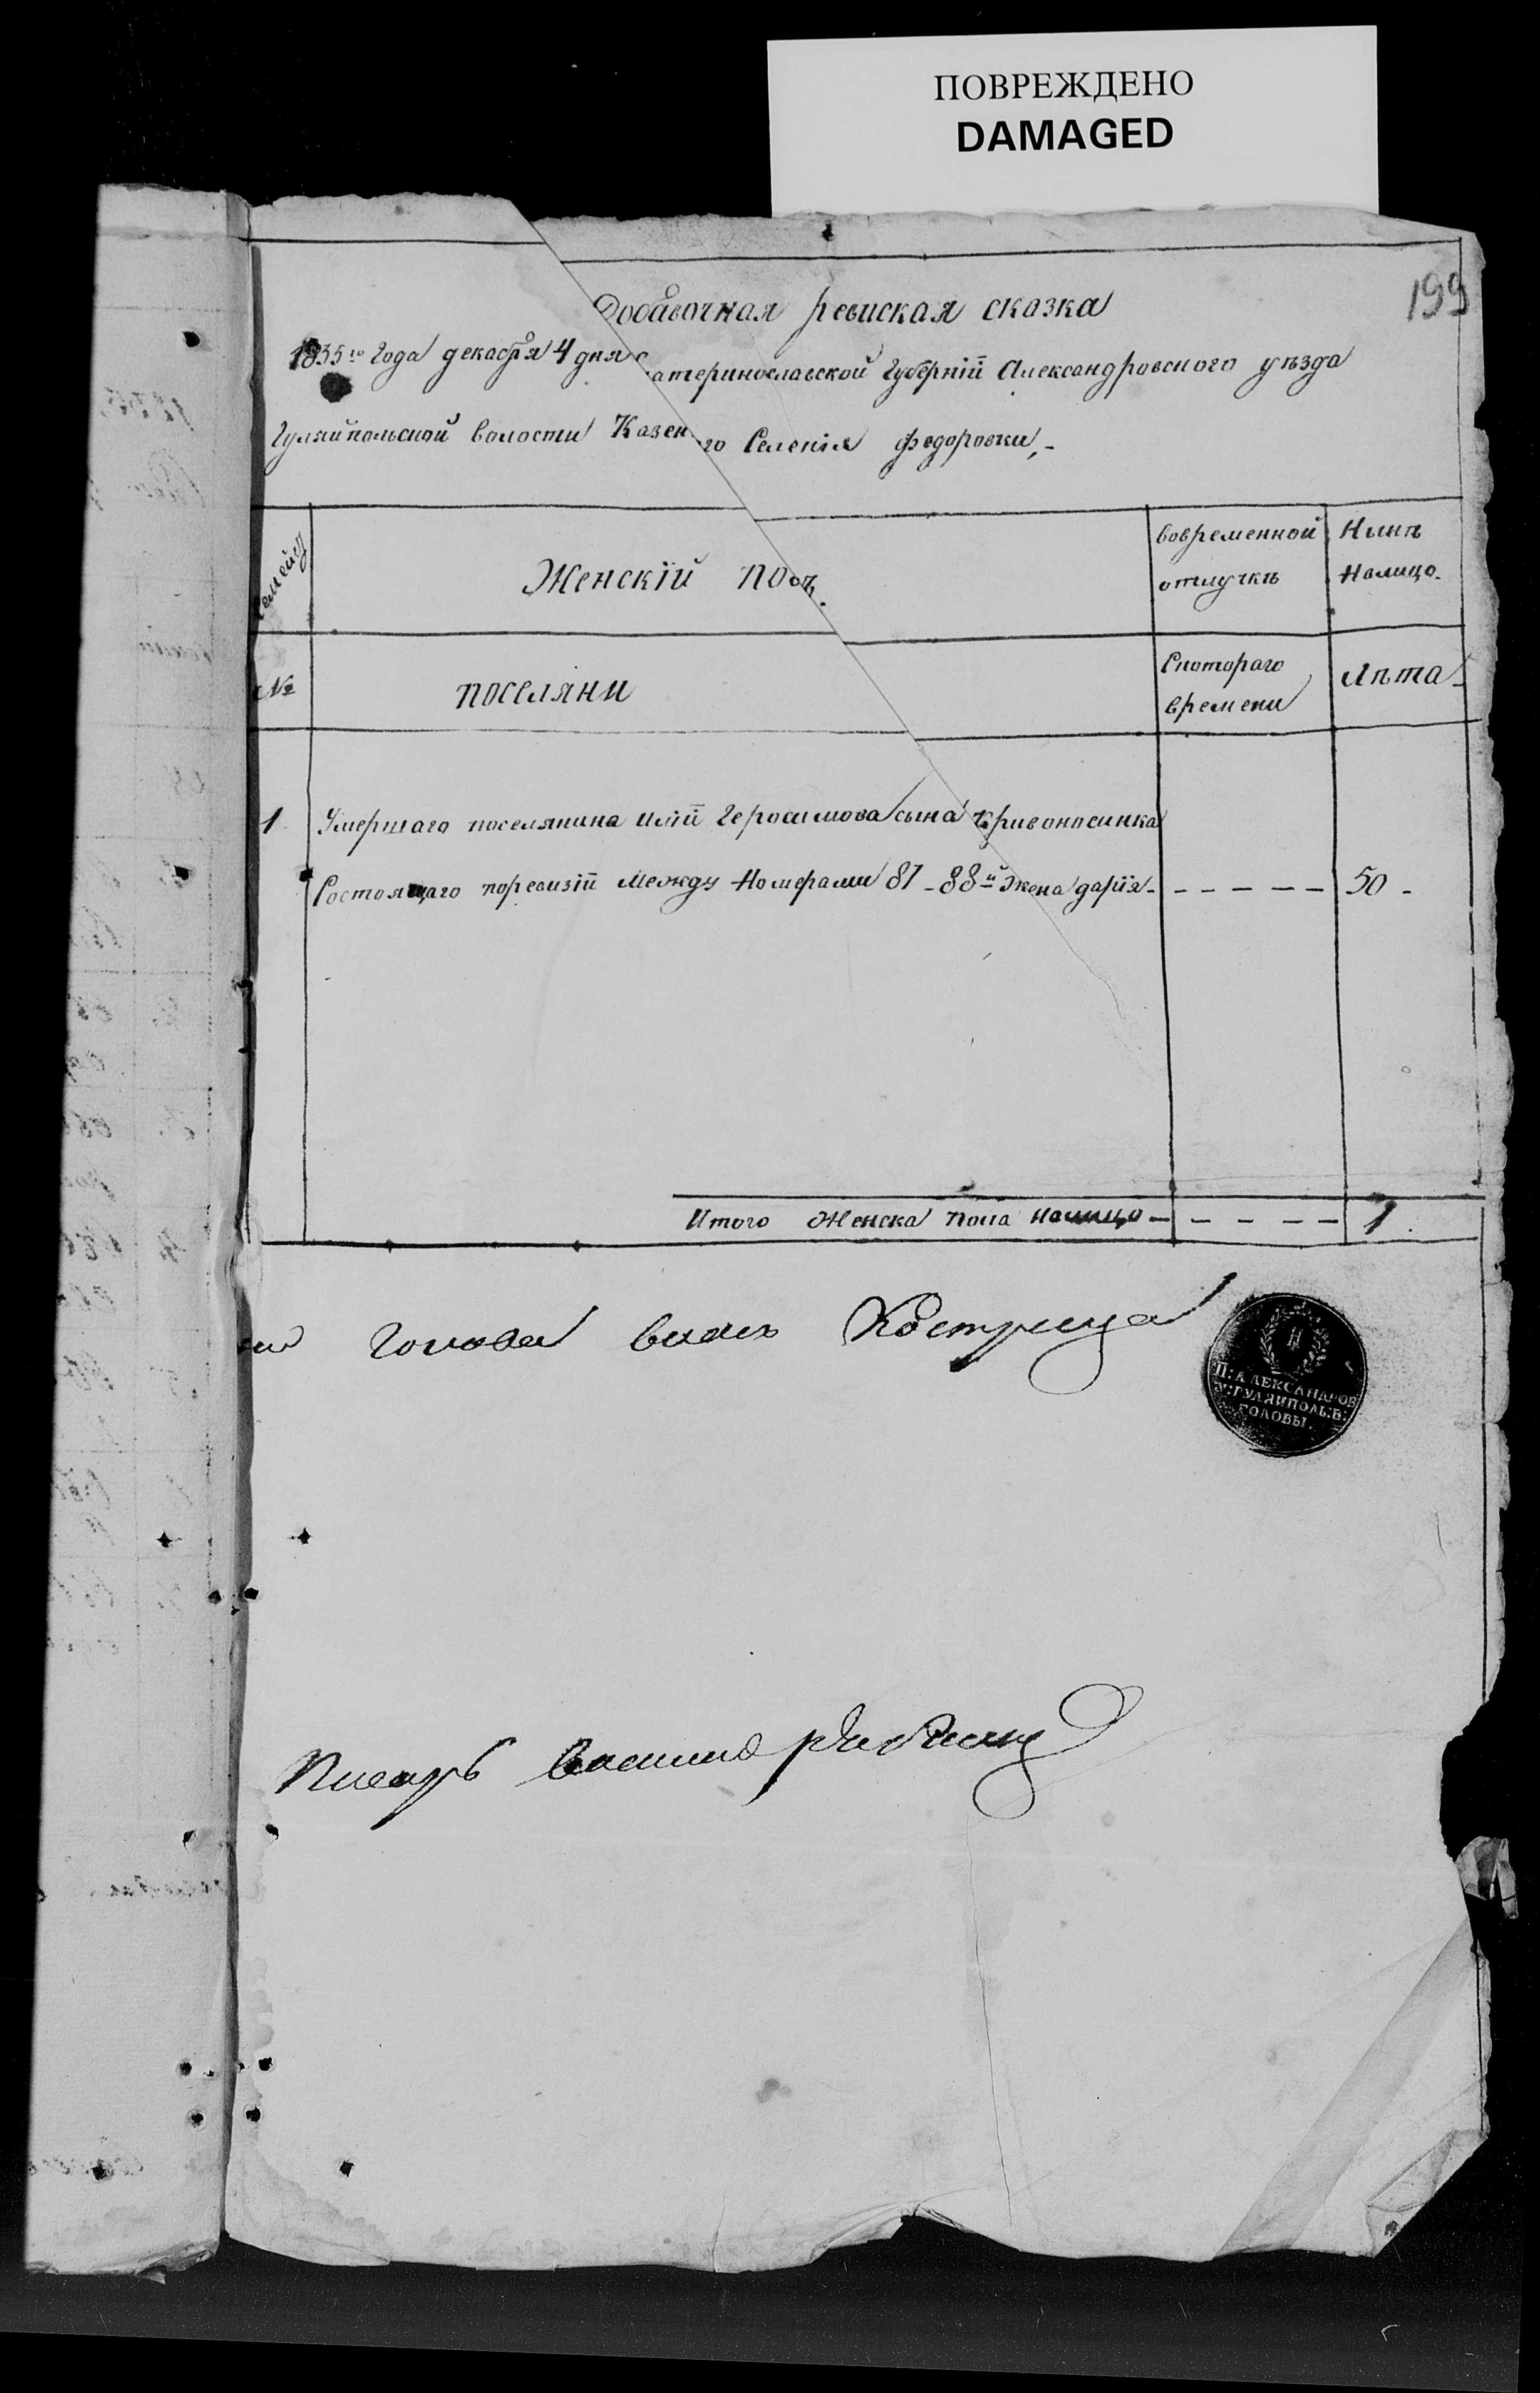 ПОВРЕЖДЕНО
DAMAGED
199
Добавочная ревиская сказка
1835го Года декабря 4 дня Екатеринославской Губернiй Александровского уѣзда
Гуляйпольской волости Казенного Селенiя Федоровки,-
Семейст
Женскiй Полъ.
вовременной отлучкѣ
Нынѣ Налицо.
№
поселяни
Скотораго времени
Лѣта
1 Умершаго поселянина Илiй Геросимова сына Кривоносинка
Состоящаго поревизiй Между Номерами 87-88й Жена дарiя - - - - - - 50 -
Итого Женска Пола Налицо - - - - - 1
Голова власъ Кострица
П: АЛЕКСАНДРОВ
У: ГУЛЯЙПОЛЬ: В:
ГОЛОВЫ.
Писарь Василий